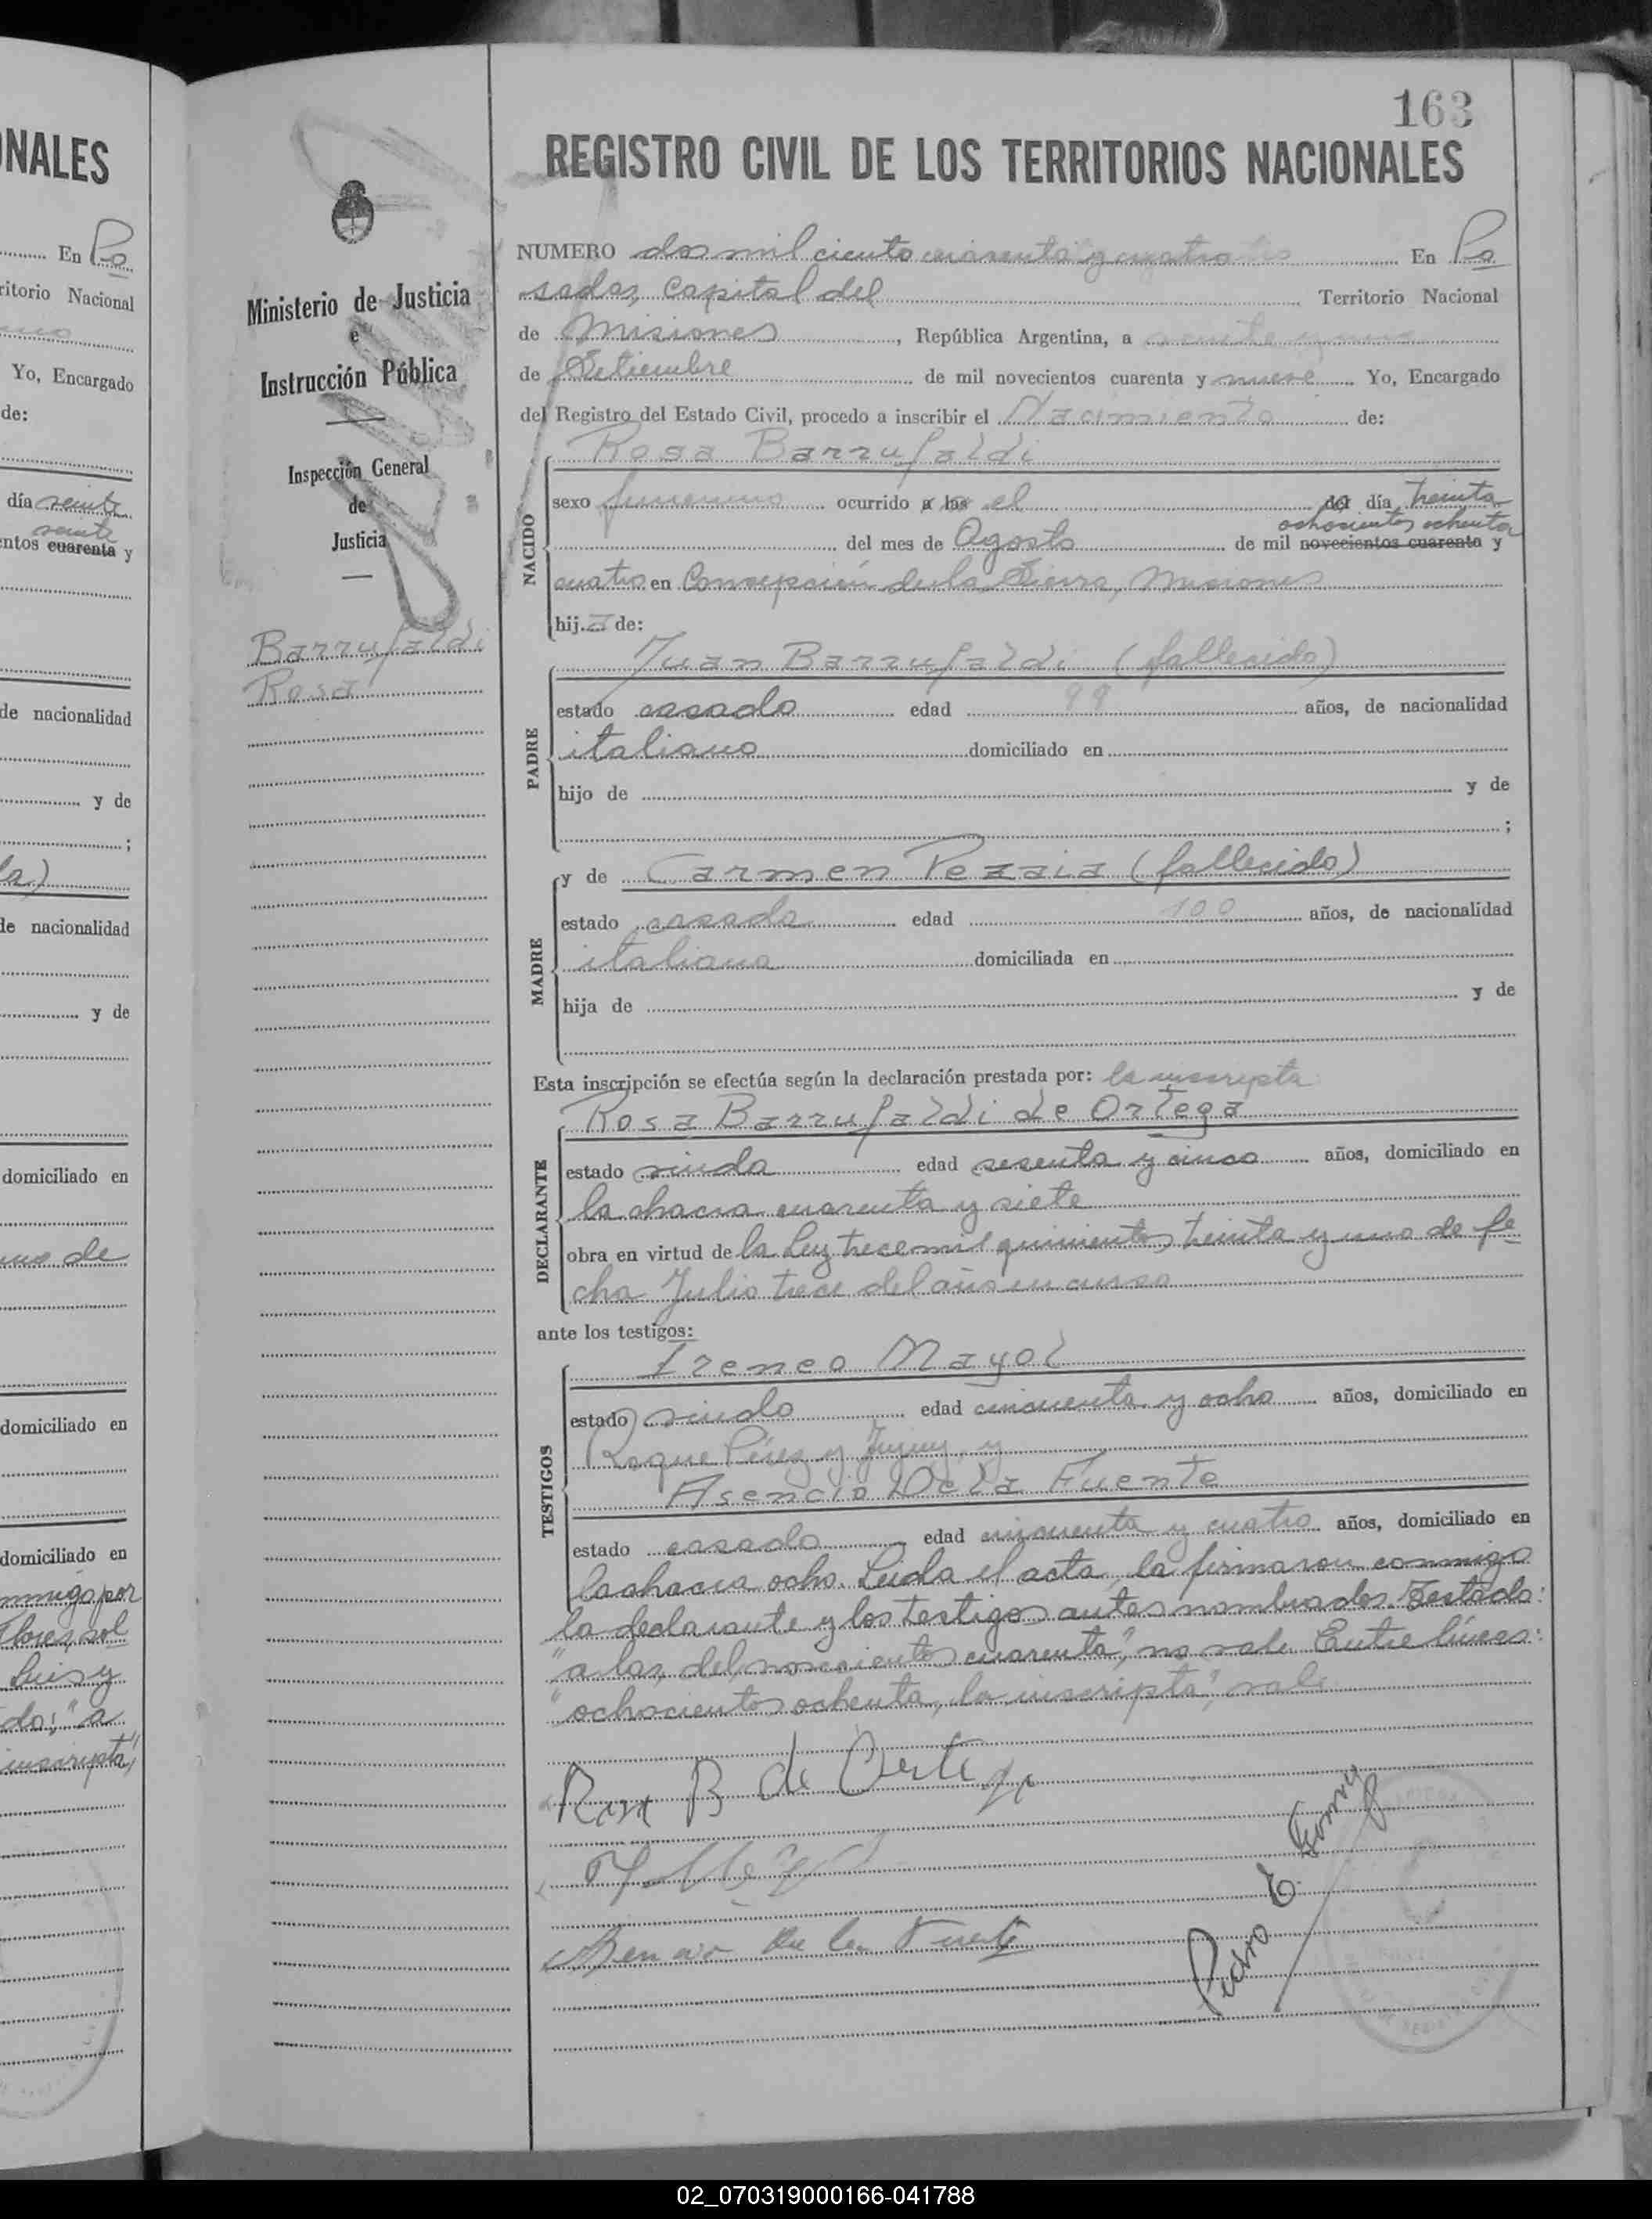 163
REGISTRO CIVIL DE LOS TERRITORIOS NACIONALES
NUMERO dos mil ciento cuarenta y cuatro En Po
sadas, capital del Territorio Nacional
de Misiones, República Argentina, a veinte y nueve
de Setiembre de mil novecientos cuarenta y nueve Yo, Encargado
del Registro del Estado Civil, procedo a inscribir el Nacimiento de:
Rosa Barrufaldi
NACIDO
sexo femenino ocurrido a las el del día treinta
ochocientos ochenta
del mes de Agosto de mil novecientos cuarenta y
cuatro en Concepción de la Sierra, Misiones
hija de:
PADRE
Juan Barrufaldi (fallecido)
estado casado edad 99 años, de nacionalidad
italiano domiciliado en
hijo de y de
;
MADRE
y de Carmen Pezaia (fallecido)
estado casada edad 100 años, de nacionalidad
italiana domiciliada en
hija de y de
Esta inscripción se efectúa según la declaración prestada por: la inscripta
DECLARANTE
Rosa Barrufaldi de Ortega
estado viuda edad sesenta y cinco años, domiciliado en
la chacra cuarenta y siete
obra en virtud de la Ley trece mil quinientos treinta y uno de fe
cha Julio trece del año en curso
ante los testigos:
TESTIGOS
Ireneo Mayol
estado viudo edad cincuenta y ocho años, domiciliado en
Roque Pérez y Jujuy, y
Asencio De la Fuente
estado casado edad cincuenta y cuatro años, domiciliado en
la chacra ocho. Leída el acta, la firmaron conmigo
la declarante y los testigos antes nombrados. Testado:
"a las, del, novecientos cuarenta", no vale. Entre líneas:
"ochocientos ochenta, la inscripta", vale
Rosa B de Ortega
Asencio De la Fuente
Ministerio de Justicia
e
Instrucción Pública
Inspección General
de
Justicia
Barrufaldi
Rosa
NALES
En Po
ritorio Nacional
Yo, Encargado
de:
día veinte
veinte
ntos cuarenta y
de nacionalidad
y de
;
la)
de nacionalidad
y de
domiciliado en
uno de
domiciliado en
domiciliado en
nmigo por
Flores, sol
Luis y
do; "a
inscripta"
02_070319000166-041788